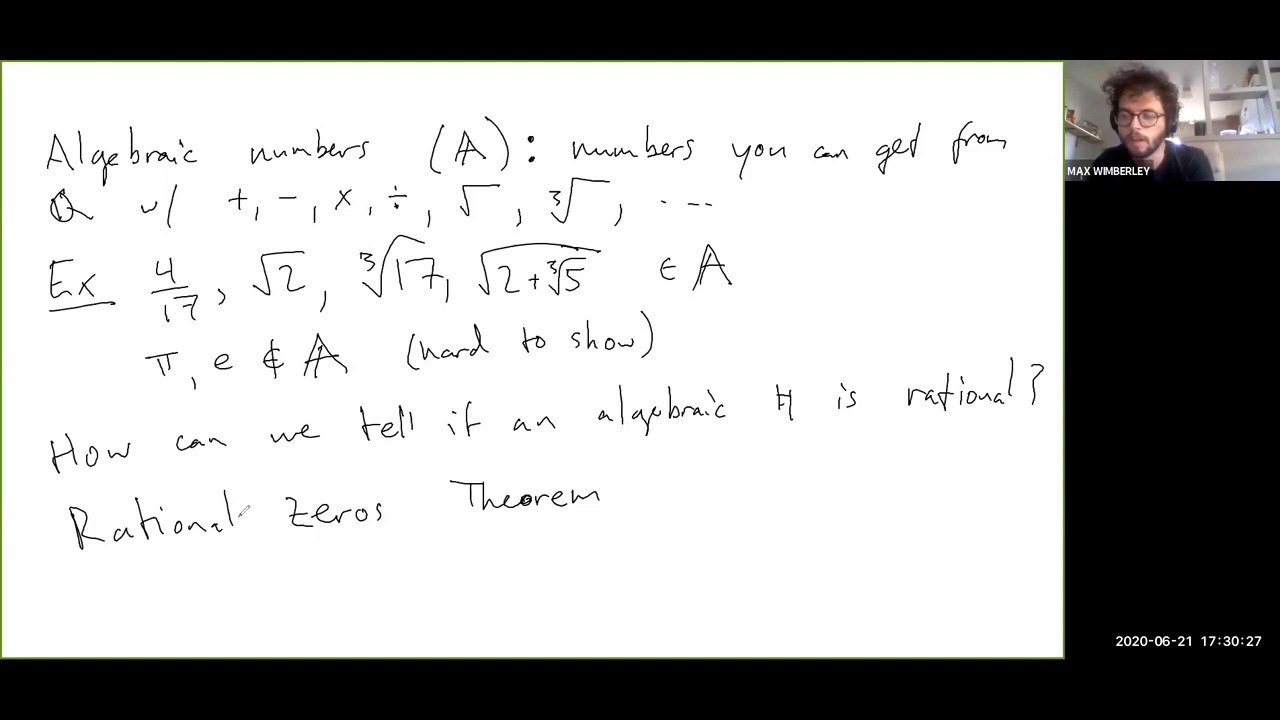 Algebraic numbers (𝔸): numbers you can get from
ℚ w/ +, -, ×, ÷, √, ∛, ...
Ex 4/17, √2, ∛17, √(2+∛5) ∈ 𝔸
π, e ∉ 𝔸 (hard to show)
How can we tell if an algebraic # is rational?
Rational Zeros Theorem
MAX WIMBERLEY
2020-06-21 17:30:27